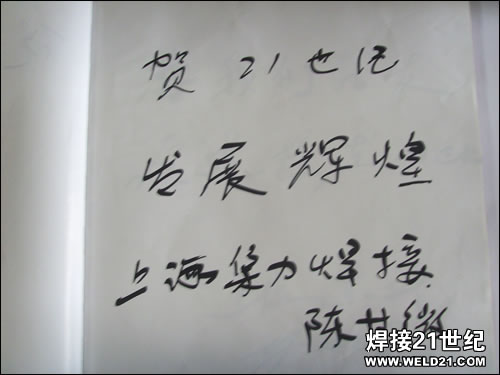 贺21世纪
发展辉煌
上海集力焊接
陈甘
焊接21世纪
WWW.WELD21.COM